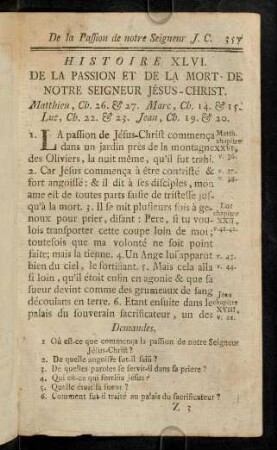 De la Passion de notre Seigneur J. C. 357
HISTOIRE XLVI.
DE LA PASSION ET DE LA MORT DE
NOTRE SEIGNEUR JÉSUS-CHRIST.
Matthieu, Ch. 26. & 27. Marc, Ch. 14. & 15.
Luc, Ch. 22. & 23. Jean, Ch. 19. & 20.
1. LA passion de Jésus-Christ commença Matth.
chapitre
dans un jardin près de la montagne XXVI,
des Oliviers, la nuit même, qu'il fut trahi. v. 36.
2. Car Jésus commença à être contristé &
fort angoissé : & il dit à ses disciples, mon
ame est de toutes parts saisie de tristesse jus-
qu'à la mort. 3. Il se mit plusieurs fois à ge- Luc
chapitre
noux pour prier, disant : Pere, si tu vou- XXII,
lois transporter cette coupe loin de moi; v. 41-42.
toutesois que ma volonté ne soit point
faite; mais la tienne. 4. Un Ange lui apparut v. 43.
bien du ciel, le fortifiant. 5. Mais cela alla v. 44.
si loin, qu'il étoit enfin en agonie & que sa
sueur devint comme des grumeaux de sang
découlans en terre. 6. Etant ensuite dans le Jean
chapitre
palais du souverain sacrificateur, un des XVIII,
v. 22.
Demandes.
1 Où est-ce que commença la passion de notre Seigneur
Jésus-Christ?
2. De quelle angoisse fut-il saisi ?
3. De quelles paroles se servit-il dans sa priere ?
4. Qui est-ce qui fortifia Jésus?
5. Quelle étoit sa sueur ?
6. Comment fut-il traité au palais du sacrificateur ?
Z 3